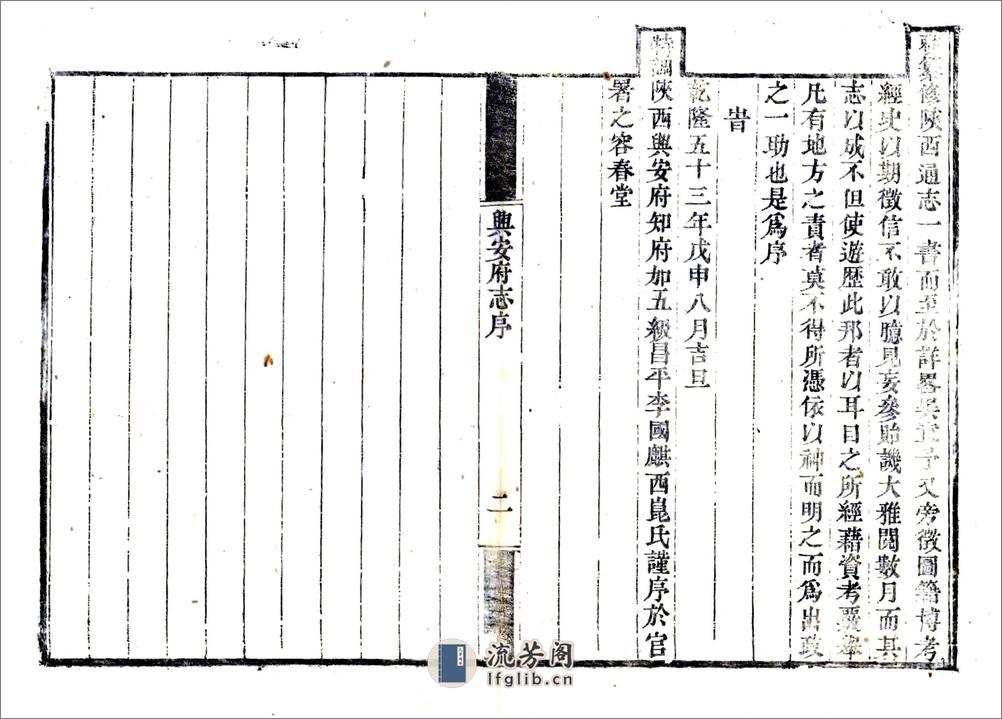 修陝西通志一書而至於詳畧異宜予又旁徵圖籍博考
經史以期徵信不敢以臆見妄參貽譏大雅閱數月而其
志以成不但使遊歷此邦者以耳目之所經藉資考覈率
凡有地方之責者莫不得所憑依以神而明之而爲出政
之一助也是爲序
旹
乾隆五十三年戊申八月吉旦
特調陝西興安府知府加五級昌平李國麒西崑氏謹序於官
署之容春堂
興安府志序
二
流芳阁
lfglib.cn